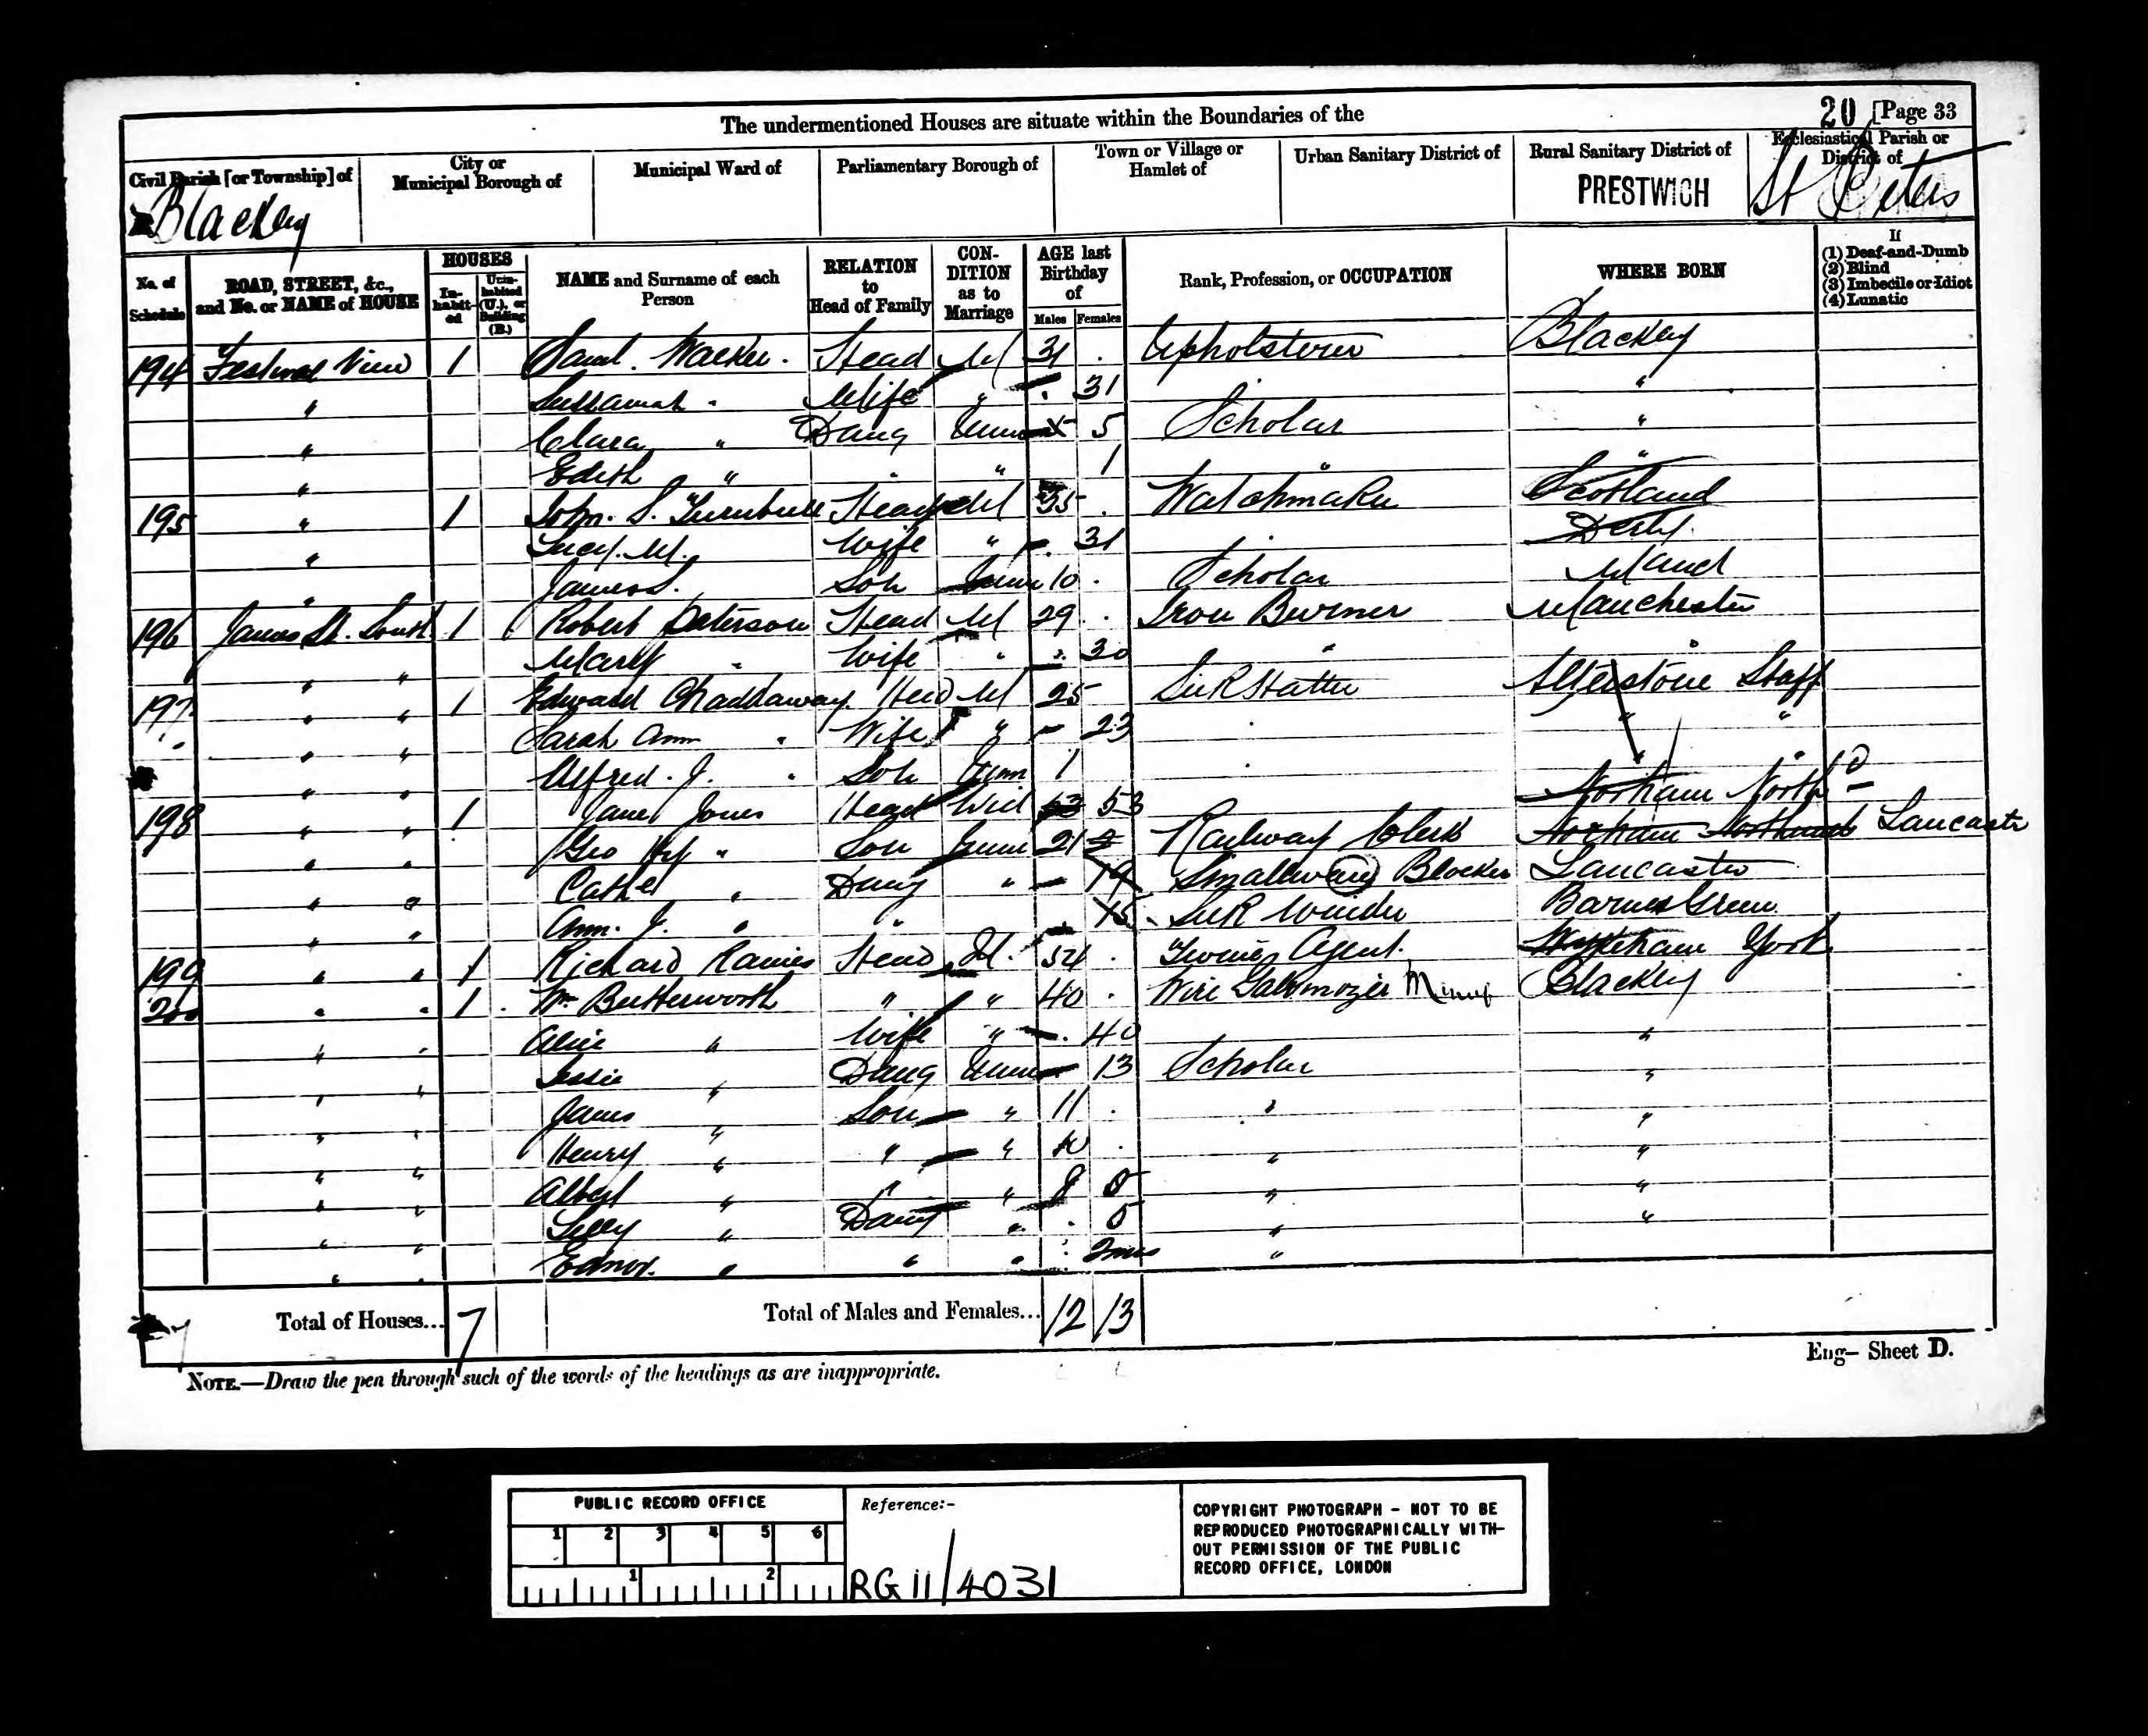 The undermentioned Houses are situate within the Boundaries of the
20 [Page 33
Civil Parish [or Township] of
City or Municipal Borough of
Municipal Ward of
Parliamentary Borough of
Town or Village or Hamlet of
Urban Sanitary District of
Rural Sanitary District of
Ecclesiastical Parish or District of
Blackley
PRESTWICH
St Peters
No. of Schedule
ROAD, STREET, &c., and No. or NAME of HOUSE
HOUSES
In-habit-ed
Unin-habited (U.), or Building (B.)
NAME and Surname of each Person
RELATION to Head of Family
CON-DITION as to Marriage
AGE last Birthday of
Males Females
Rank, Profession, or OCCUPATION
WHERE BORN
If
(1) Deaf-and-Dumb
(2) Blind
(3) Imbecile or Idiot
(4) Lunatic
194 View 1 Saml. Walker. Head M 31 Upholsterer Blackley
" " Wife " 31 "
" Clara " Daug Unm 5 Scholar "
" Edith " " " 1 " "
195 " 1 John. S. Turnbull Head M 35 Watchmaker Scotland
" Lucy. M. Wife " 31 Derby
" James S. Son Unm 10 Scholar Manch
196 James St. South 1 Robert Peterson Head M 29 Iron Manchester
" " Mary " Wife " 30 " "
197 " " 1 Edward Chaddaway Head M 25 Silk Staff
" " Sarah Ann " Wife " 23 " "
" " Alfred. J. " Son Unm 1 " "
198 " " 1 Jane Jones Head Wid 53 Norham North'd
" " Geo Hy " Son Unm 21 Railway Clerk Lancaster
" " Cathe " Daug " 19 Smallware Blocker Lancaster
" " Ann. J. " " " 15 Silk Winder Barnes Green
199 " " 1 Richard Raines Head M. 54 Agent York
200 " " 1 Wm Butterworth " " 40 Wire Blackley
" " Alice " Wife " 40 "
" " Jessie " Daug Unm 13 Scholar "
" " James " Son " 11 " "
" " Henry " " " 10 " "
" " Albert " " " 8 " "
" " Lilly " Daug " 5 " "
" " " " " 2mos "
Total of Houses... 7
Total of Males and Females... 12 13
Eng— Sheet D.
NOTE.—Draw the pen through such of the words of the headings as are inappropriate.
PUBLIC RECORD OFFICE
1 2 3 4 5 6
1 2
Reference:-
RG 11/4031
COPYRIGHT PHOTOGRAPH - NOT TO BE
REPRODUCED PHOTOGRAPHICALLY WITH-
OUT PERMISSION OF THE PUBLIC
RECORD OFFICE, LONDON